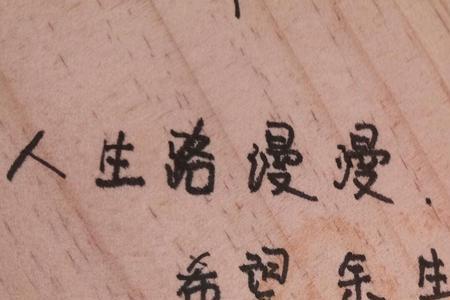 人生路漫漫.
希望余生